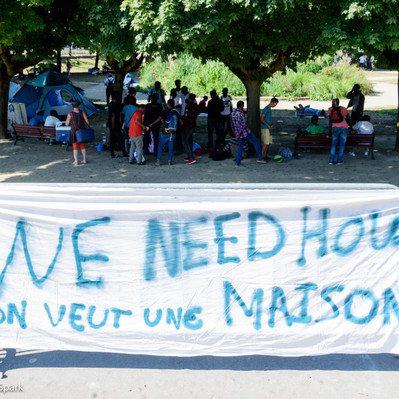 WE NEED HOU
ON VEUT UNE MAISON
Spark